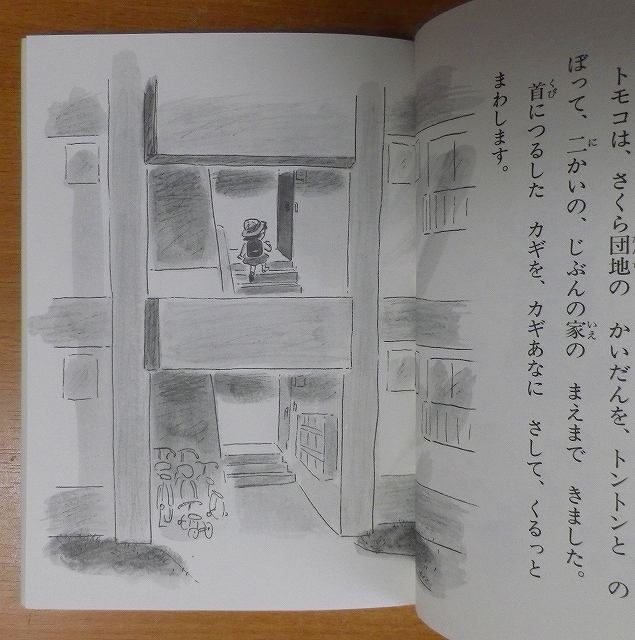 トモコは、さくら団地の　かいだんを、トントンと　の
ぼって、二かいの、じぶんの家の　まえまで　きました。
首につるした　カギを、カギあなに　さして、くるっと
まわします。